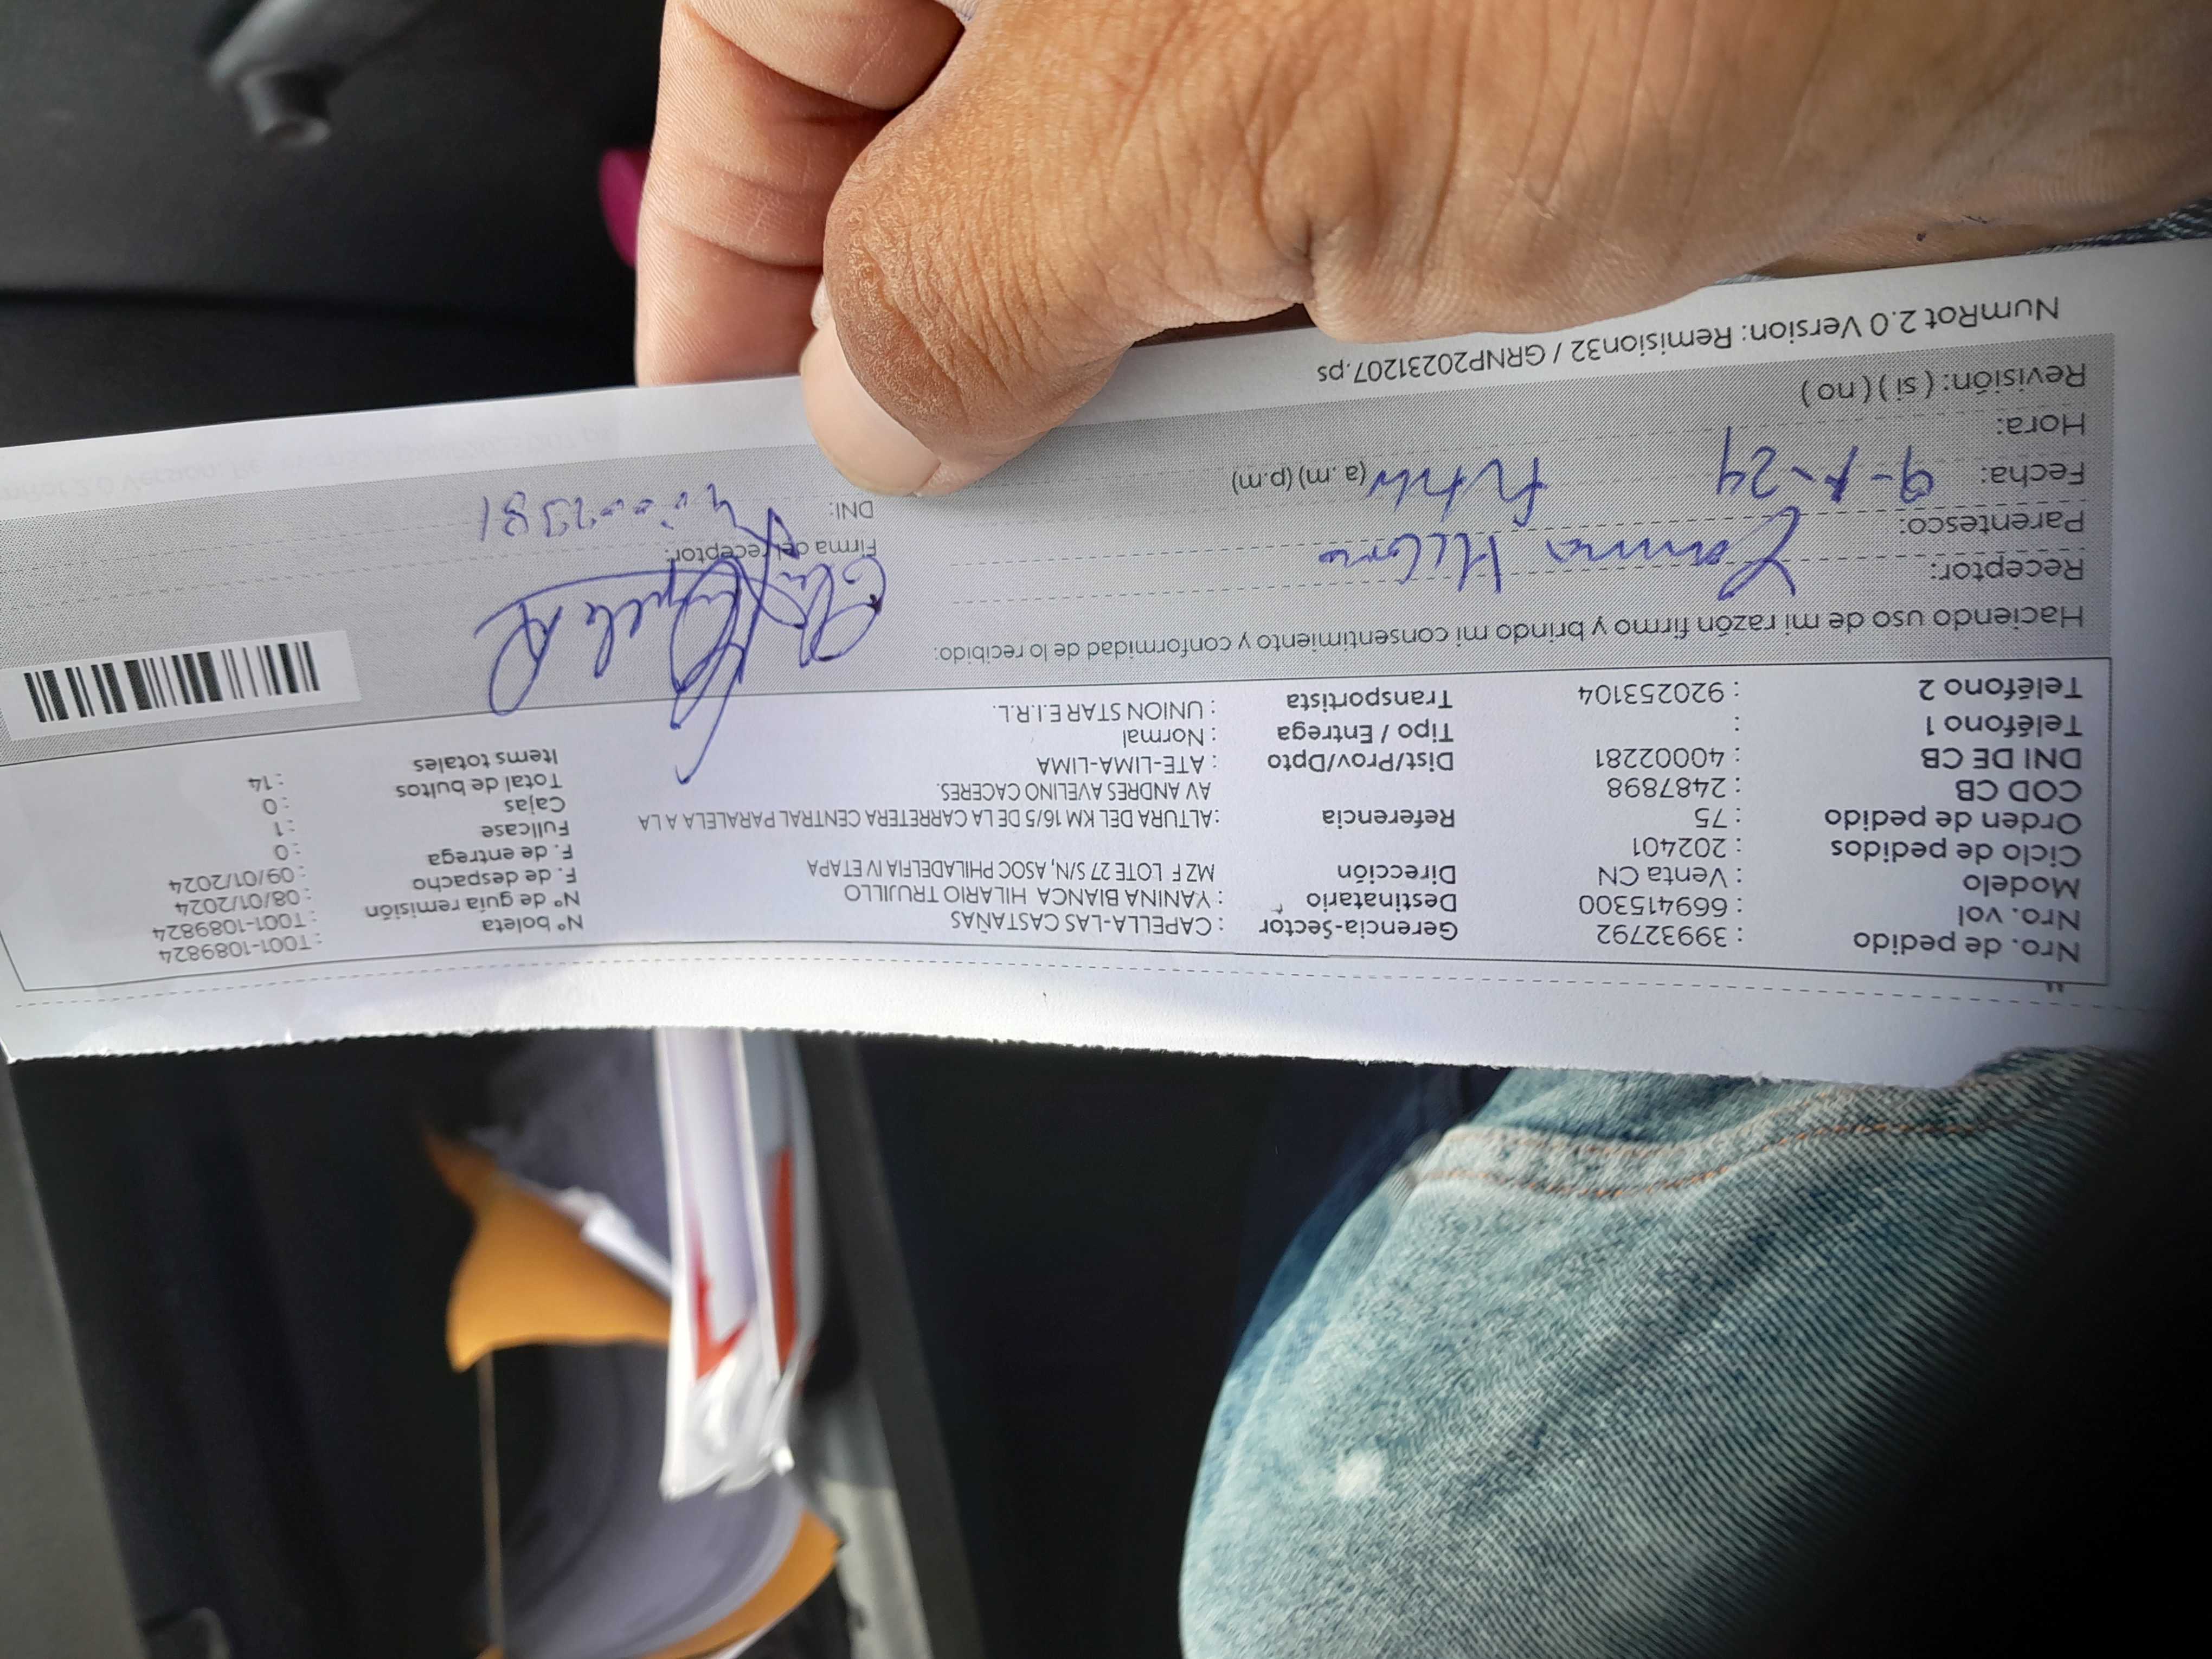 Nro. de pedido : 39932792 Gerencia-Sector : CAPELLA-LAS CASTAÑAS Nº boleta : T001-1089824
Nro. vol : 669415300 Destinatario : YANINA BIANCA HILARIO TRUJILLO Nº de guía remisión : T001-1089824
Modelo : Venta CN Dirección MZ F LOTE 27 S/N, ASOC PHILADELFIA IV ETAPA F. de despacho : 08/01/2024
Ciclo de pedidos : 202401 F. de entrega : 09/01/2024
Orden de pedido : 75 Referencia :ALTURA DEL KM 16/5 DE LA CARRETERA CENTRAL PARALELA A LA Fullcase : 0
COD CB : 2487898 AV ANDRES AVELINO CACERES. Cajas : 1
DNI DE CB : 40002281 Dist/Prov/Dpto : ATE-LIMA-LIMA Total de bultos : 0
Teléfono 1 : Tipo / Entrega : Normal Items totales : 14
Teléfono 2 : 920253104 Transportista : UNION STAR E.I.R.L.
Haciendo uso de mi razón firmo y brindo mi consentimiento y conformidad de lo recibido:
Receptor:
Parentesco: Firma del receptor:
Fecha: 9-1-24 DNI:
Hora: (a. m) (p.m)
Revisión: ( si ) ( no )
NumRot 2.0 Version: Remision32 / GRNP20231207.ps